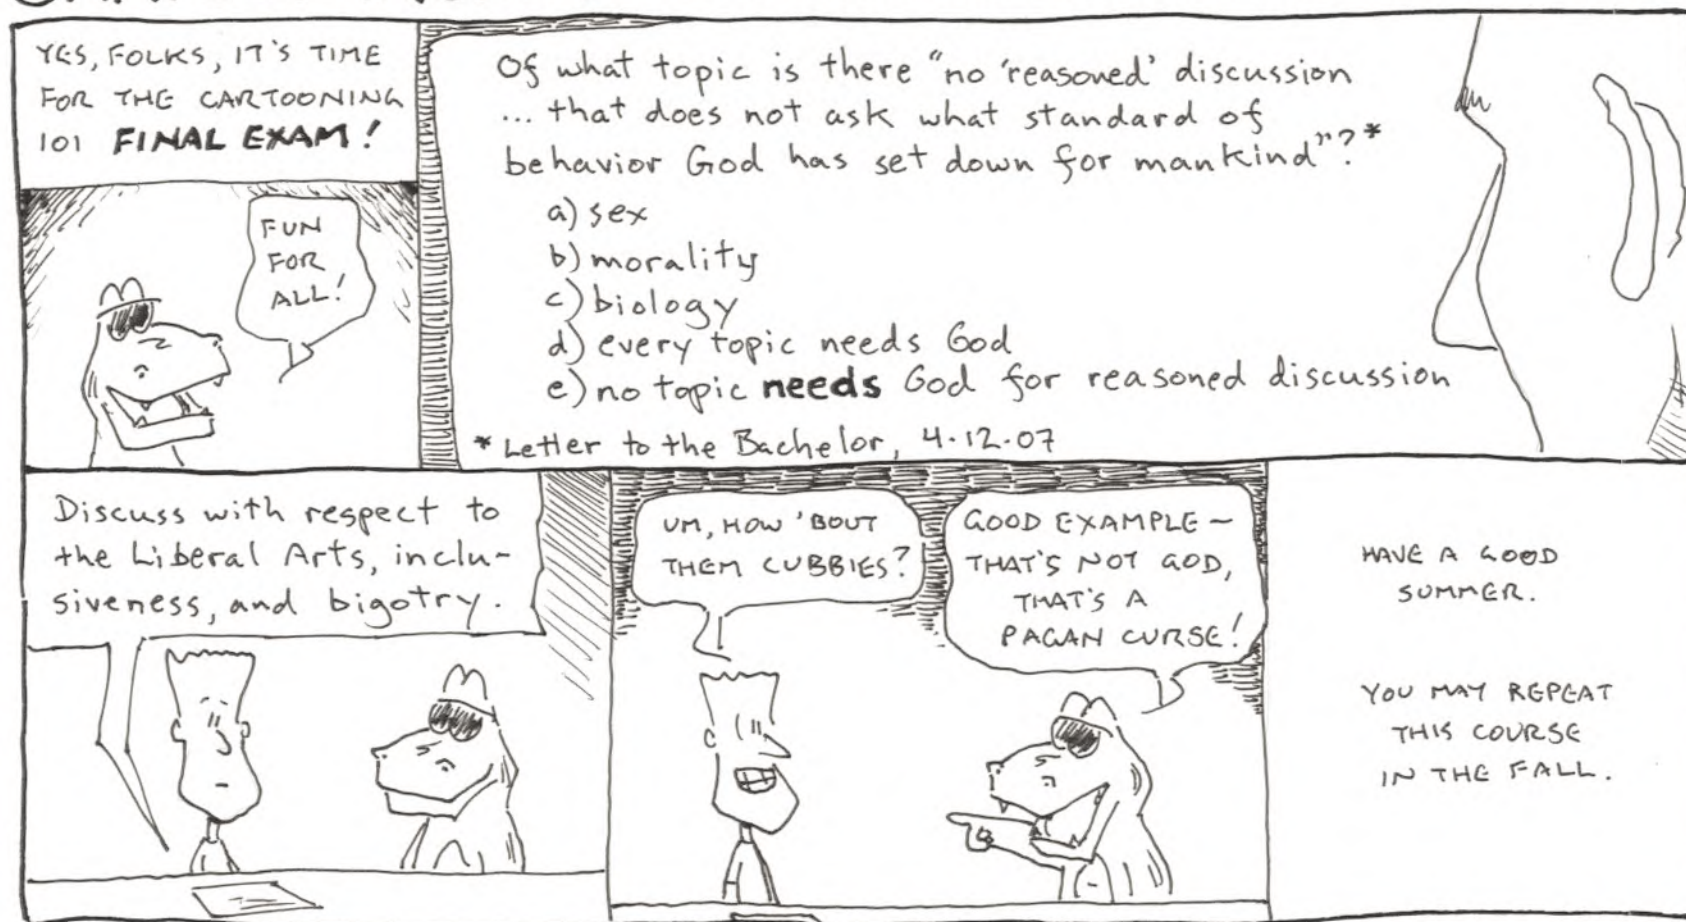 YES, FOLKS, IT'S TIME
FOR THE CARTOONING
101 FINAL EXAM!
FUN
FOR
ALL!
Of what topic is there "no 'reasoned' discussion
... that does not ask what standard of
behavior God has set down for mankind"?*
a) sex
b) morality
c) biology
d) every topic needs God
e) no topic needs God for reasoned discussion
* Letter to the Bachelor, 4.12.07
Discuss with respect to
the Liberal Arts, inclu-
siveness, and bigotry.
UM, HOW 'BOUT
THEM CUBBIES?
GOOD EXAMPLE ~
THAT'S NOT GOD,
THAT'S A
PAGAN CURSE!
HAVE A GOOD
SUMMER.
YOU MAY REPEAT
THIS COURSE
IN THE FALL.